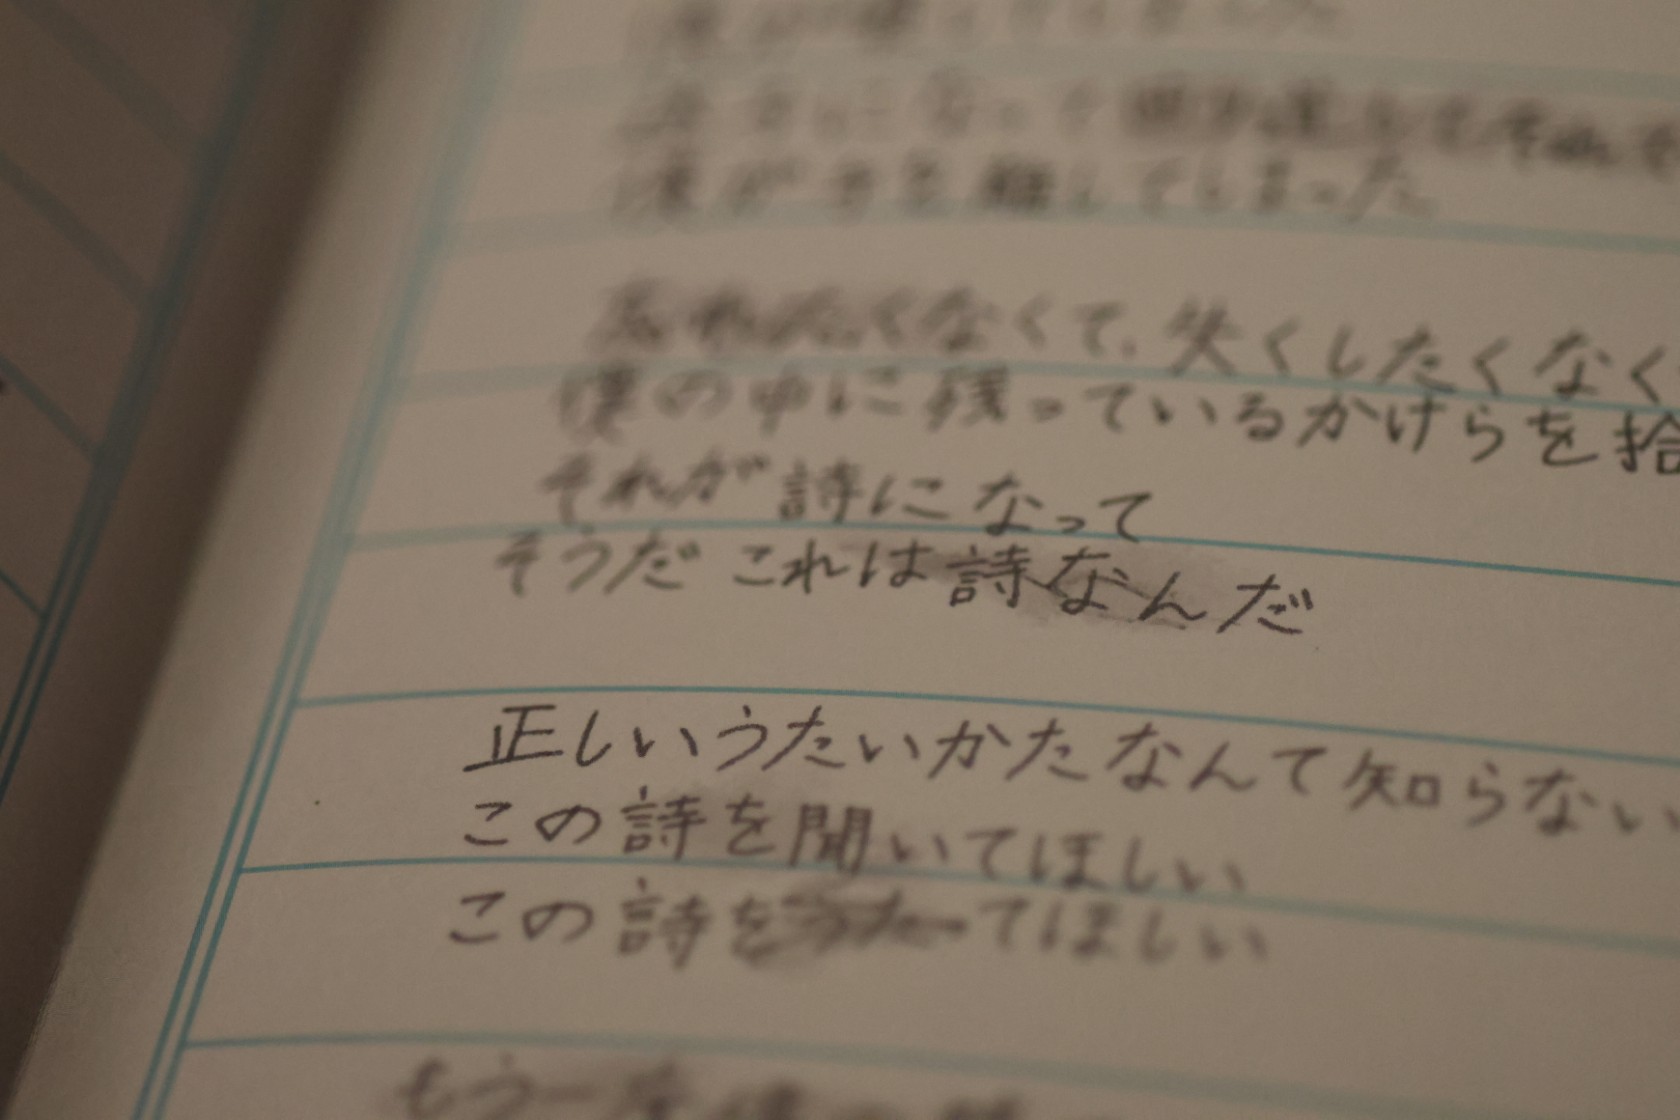 僕が手を離してしまった
忘れたくなくて、失くしたくなく
僕の中に残っているかけらを拾
それが詩になって
そうだ これは詩なんだ
正しいうたいかたなんて知らない
この詩を聞いてほしい
この詩をうたってほしい
もう一度僕の